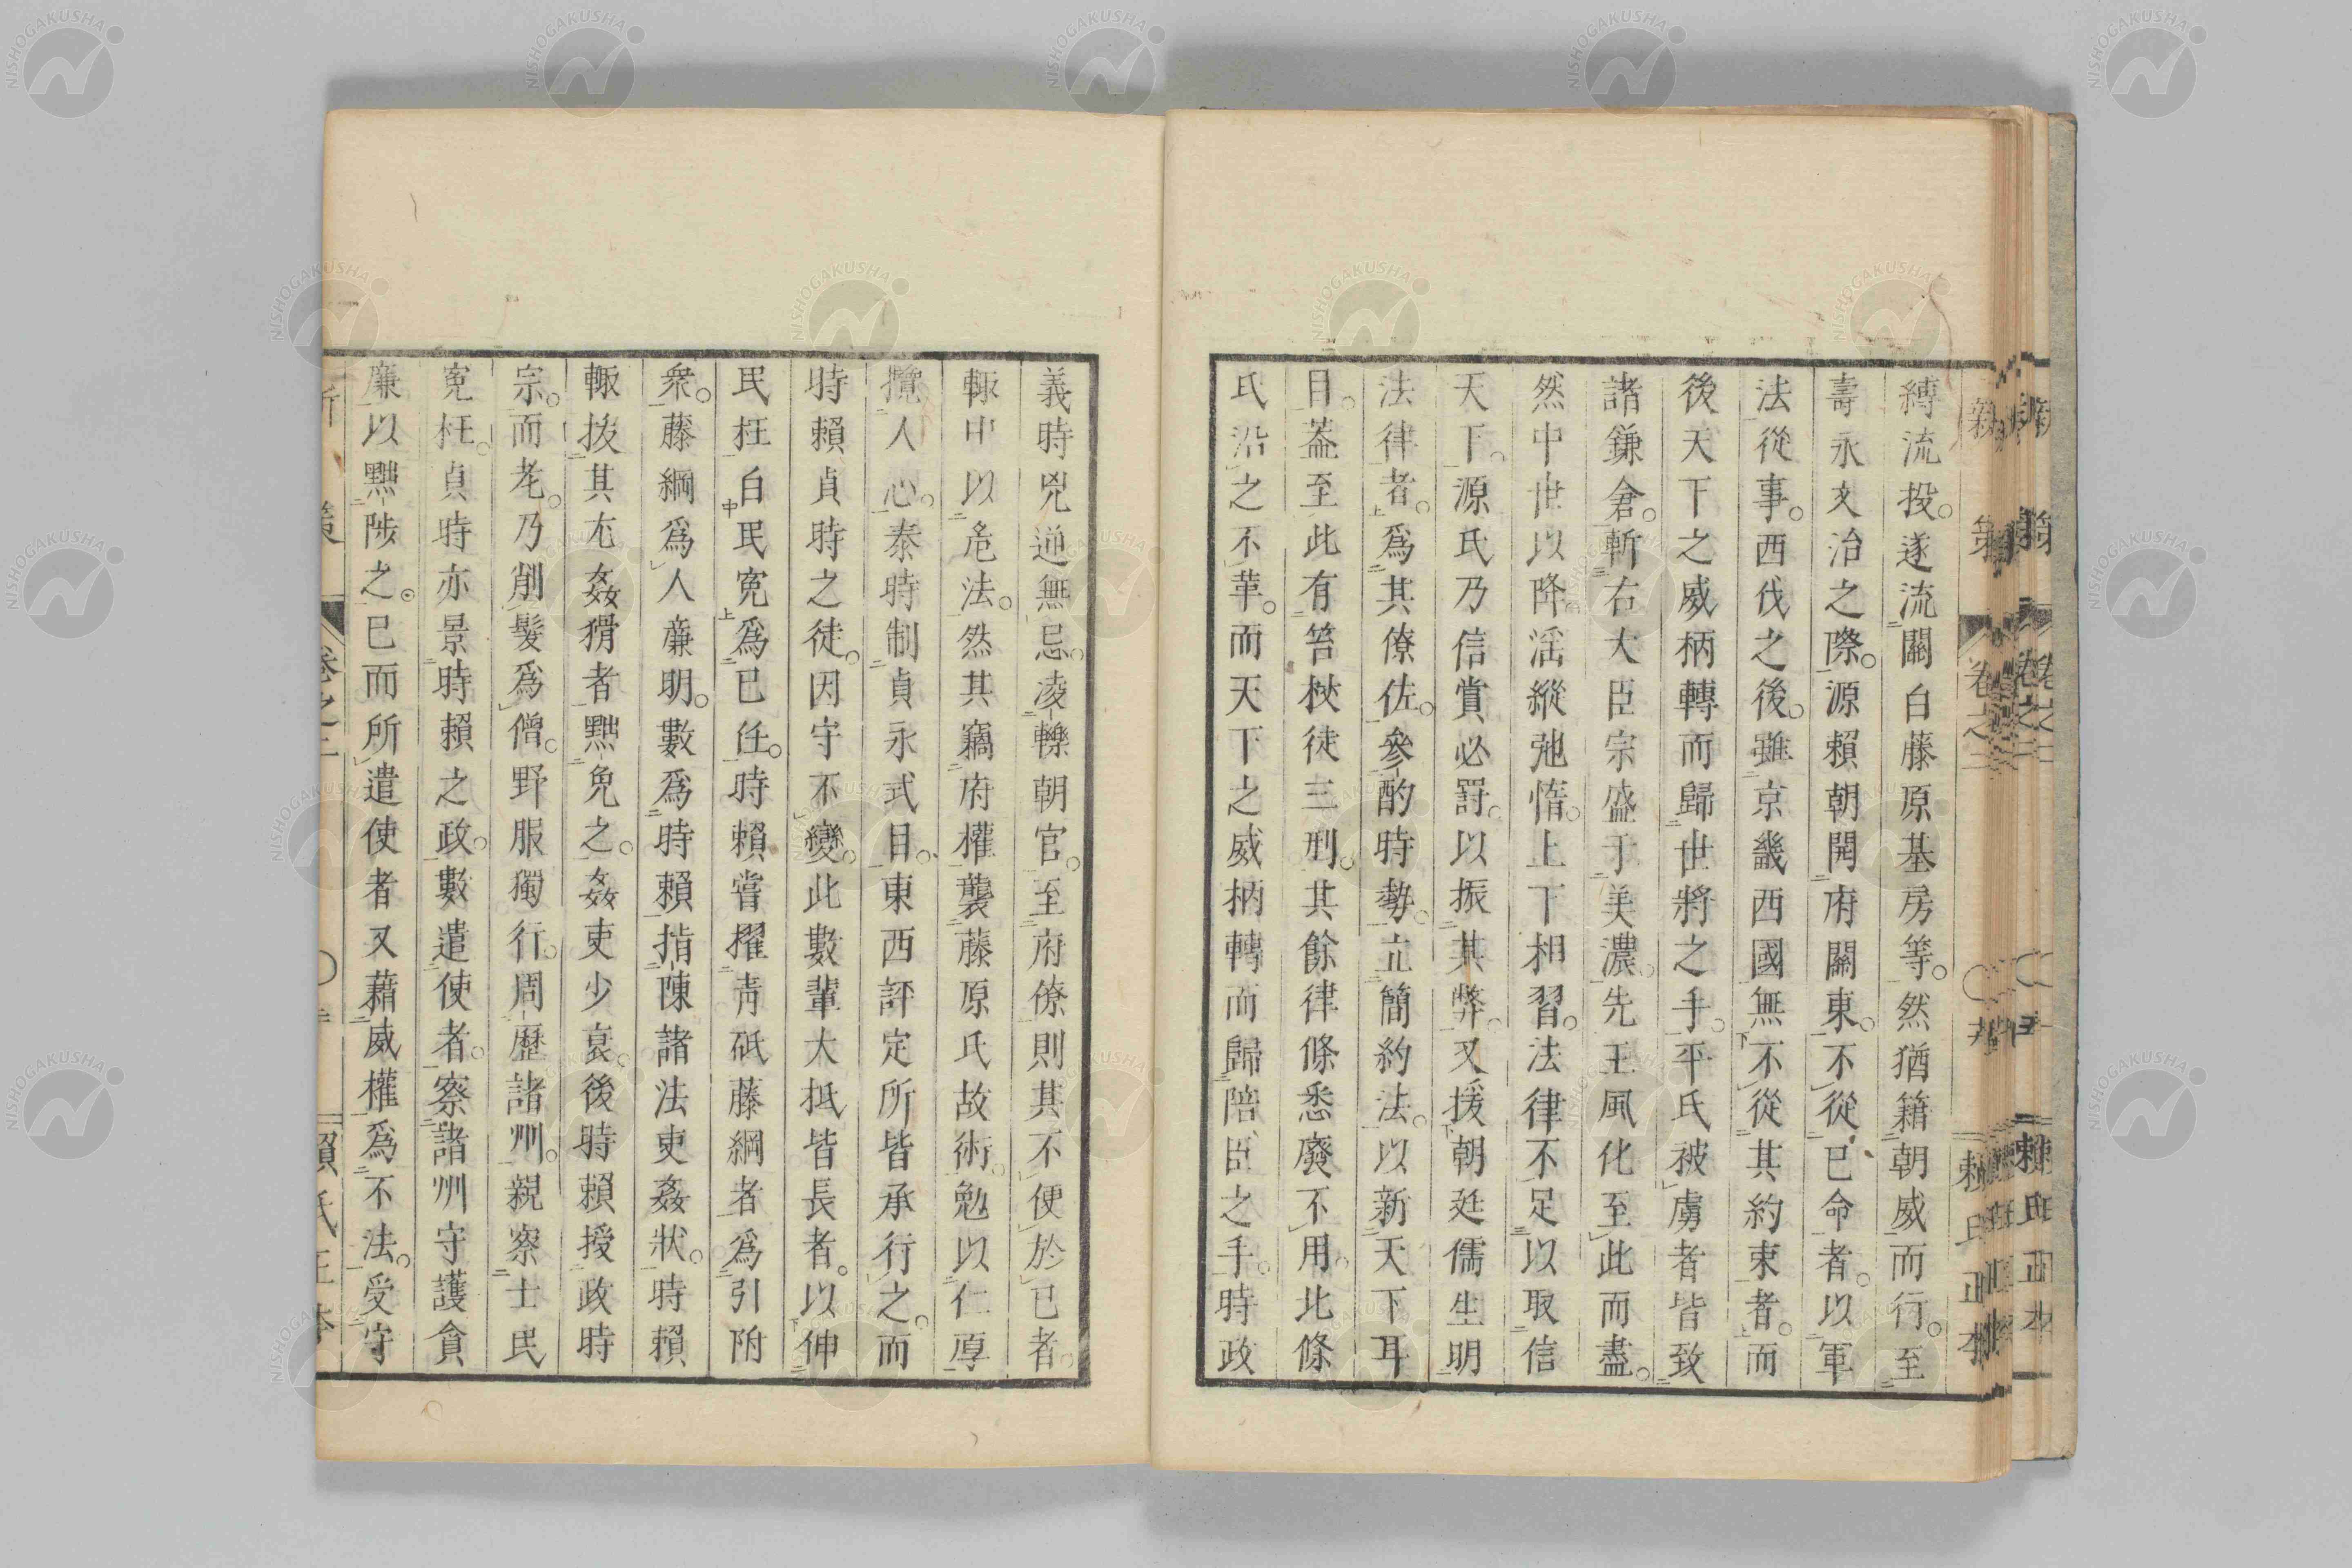 縛流投。遂流關白藤原基房等。然猶籍朝威而行。至
壽永文治之際。源賴朝開府關東。不從已命者。以軍
法從事。西伐之後。雖京畿西國無不從其約束者。而
後天下之威柄轉而歸世將之手。平氏被虜者皆致
諸鎌倉。斬右大臣宗盛于美濃。先王風化至此而盡。
然中世以降。滛縱弛惰。上下相習。法律不足以取信
天下。源氏乃信賞必罸。以振其弊。又援朝廷儒生明
法律者。爲其僚佐。參酌時勢。立簡約法。以新天下耳
目。葢至此有笞杖徒三刑。其餘律條悉廢不用。北條
氏沿之不革。而天下之威柄轉而歸陪臣之手。時政
義時兇逋無忌。凌轢朝官。至府僚則其不便於已者。
輙中以危法。然其竊府權襲藤原氏故術。勉以仁厚
攬人心。泰時制貞永式目。東西評定所皆承行之。而
時賴貞時之徒。因守不變。此數輩大抵皆長者。以伸
民枉白民寃爲已任。時賴嘗擢靑砥藤綱者爲引附
衆。藤綱爲人亷明。數爲時賴指陳諸法吏姦狀。時賴
輙拔其尤姦猾者黜免之。姦吏少衰。後時賴授政時
宗。而老。乃削髮爲僧。野服獨行。周歷諸州。親察士民
寃枉。貞時亦景時賴之政。數遣使者。察諸州守護貪
廉以黜陟之。已而所遣使者又藉威權爲不法。受守
NISHOGAKUSHA